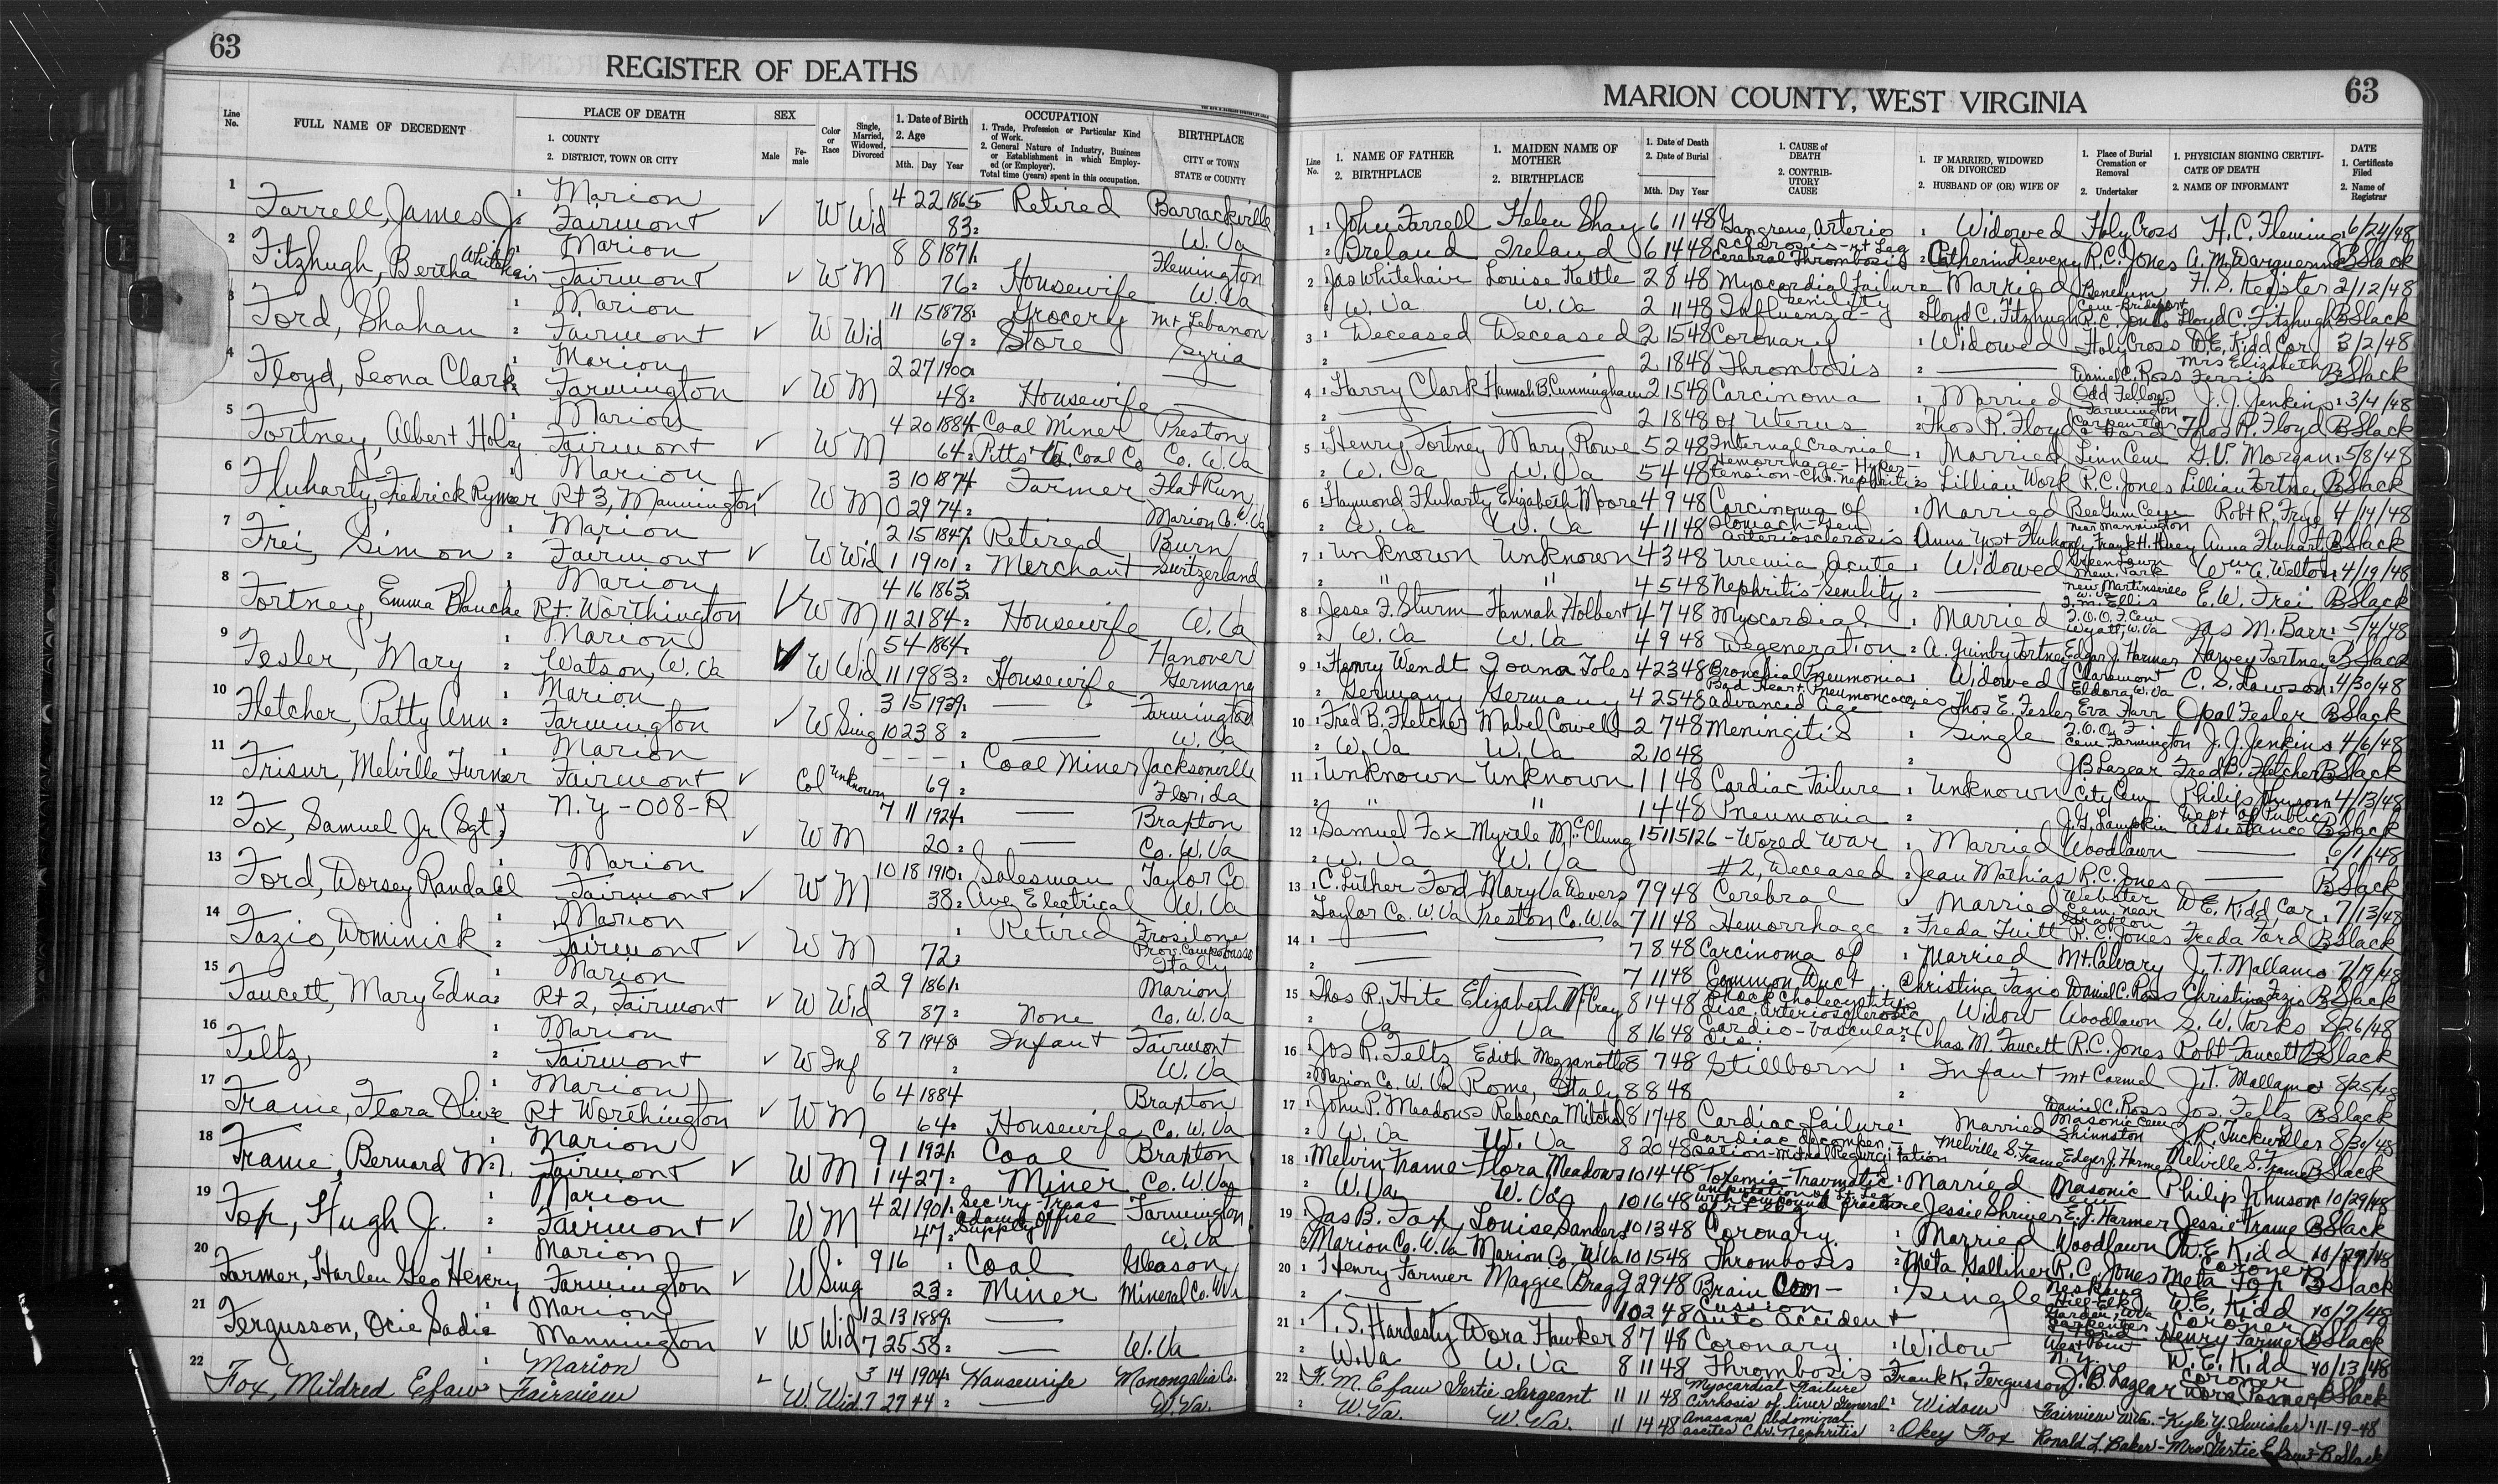 63
REGISTER OF DEATHS
Line No.
FULL NAME OF DECEDENT
PLACE OF DEATH
1. COUNTY
2. DISTRICT, TOWN OR CITY
SEX
Male
Fe-male
Color or Race
Single, Married, Widowed, Divorced
1. Date of Birth
2. Age
Mth. Day Year
OCCUPATION
1. Trade, Profession or Particular Kind of Work.
2. General Nature of Industry, Business or Establishment in which Employed (or Employer).
Total time (years) spent in this occupation.
BIRTHPLACE
CITY or TOWN
STATE or COUNTY
1 Farrell, James J. 1 Marion 4 22 1865 Retired Barrackville
2 Fairmont ✓ W Wid 83 W. Va
2 Fitzhugh, Bertha Whitehair Marion 8 8 1871 Flemington
Fairmont ✓ W M 76 Housewife W. Va
3 Ford, Shahan Marion 11 15 1878 Grocery Mt Lebanon
Fairmont ✓ W Wid 69 Store Syria
4 Floyd, Leona Clark Marion 2 27 1900
Farmington ✓ W M 48 Housewife
5 Fortney, Albert Marion 4 20 1884 Coal Miner Preston
Fairmont ✓ W M 64 Pitts Coal Co Co. W. Va
6 Fluharty, Fredrick Rymer Marion 3 10 1874 Farmer Flat Run
Rt 3, Mannington ✓ W M 0 29 74 Marion Co. W. Va
7 Frei, Simon Marion 2 15 1847 Retired Burn
Fairmont ✓ W Wid 1 19 101 Merchant Switzerland
8 Fortney, Emma Blanche Marion 4 16 1863
Rt. Worthington ✓ W M 11 21 84 Housewife W. Va
9 Fesler, Mary Marion 5 4 1864 Hanover
Watson, W. Va ✓ W Wid 11 19 83 Housewife Germany
10 Fletcher, Patty Ann Marion 3 15 1939 Farmington
Farmington ✓ W Sing 10 23 8 W. Va
11 Frisur, Melville Turner Marion - - - Coal Miner Jacksonville
Fairmont ✓ Col unknown 69 Florida
12 Fox, Samuel Jr (Sgt) N.Y-008-R 7 11 1924 Braxton
✓ W M 20 Co. W. Va
13 Ford, Dorsey Randall Marion 10 18 1910 Salesman Taylor Co
Fairmont ✓ W M 38 Electrical W. Va
14 Fazio, Dominick Marion Retired Frosilone
Fairmont ✓ W M 72 Prov. Campobasso Italy
15 Faucett, Mary Edna Marion 2 9 1861 Marion
Rt 2, Fairmont ✓ W Wid 87 None Co. W. Va
16 Feltz, Marion 8 7 1948 Infant Fairmont
Fairmont ✓ W Inf W. Va
17 Frame, Flora Olive Marion 6 4 1884 Braxton
Rt Worthington ✓ W M 64 Housewife Co. W. Va
18 Frame, Bernard M. Marion 9 1 1921 Coal Braxton
Fairmont ✓ W M 1 14 27 Miner Co. W. Va
19 Fox, Hugh J. Marion 4 21 1901 Sec'ry-Treas Farmington
Fairmont ✓ W M 47 Office Supply W. Va
20 Farmer, Harlen Geo Henry Marion 9 16 Coal Gleason
Farmington ✓ W Sing 23 Miner Mineral Co. W. Va
21 Fergusson, Ocie Sadie Marion 12 13 1889
Mannington ✓ W Wid 7 25 58 W. Va
22 Fox, Mildred Efaw Marion 3 14 1904 Housewife Monongalia Co.
Fairview W. Wid. 7 27 44 W. Va.
MARION COUNTY, WEST VIRGINIA
63
Line No.
1. NAME OF FATHER
2. BIRTHPLACE
1. MAIDEN NAME OF MOTHER
2. BIRTHPLACE
1. Date of Death
2. Date of Burial
Mth. Day Year
1. CAUSE of DEATH
2. CONTRIBUTORY CAUSE
1. IF MARRIED, WIDOWED OR DIVORCED
2. HUSBAND OF (OR) WIFE OF
1. Place of Burial Cremation or Removal
2. Undertaker
1. PHYSICIAN SIGNING CERTIFICATE OF DEATH
2. NAME OF INFORMANT
DATE
1. Certificate Filed
2. Name of Registrar
1 John Farrell Helen Shay 6 11 48 Gangrene, Arterio Widowed Holy Cross H. C. Fleming 6/24/48
Ireland Ireland 6 14 48 sclerosis-rt Leg Cerebral Thrombosis Catherin Deveny R.C. Jones B Slack
2 Jas Whitehair Louise Kettle 2 8 48 Myocardial Failure Married Benedum Cem-Bridgeport F. S. Keister 2/12/48
W. Va W. Va 2 11 48 Influenza-senility Lloyd C. Fitzhugh R.C. Jones Lloyd C. Fitzhugh B Slack
3 Deceased Deceased 2 15 48 Coronary Widowed Holy Cross W.E. Kidd Cor 3/2/48
2 18 48 Thrombosis Daniel C. Ross Mrs Elizabeth Ferris B Slack
4 Harry Clark Hannah B. Cunningham 2 15 48 Carcinoma Married Odd Fellows Farmington J. J. Jenkins 3/4/48
2 18 48 of Uterus Thos R. Floyd Carpenter & Ford Thos R. Floyd B Slack
5 Henry Fortney Mary Rowe 5 2 48 Internal Cranial Married Linn Cem G. V. Morgan 5/8/48
W. Va W. Va 5 4 48 Hemorrhage-Hypertension-Chr. Nephritis Lillian Work R.C. Jones Lillian Fortney B Slack
6 Haymond Fluharty Elizabeth Moore 4 9 48 Carcinoma of Married Bee Gum Cem near Mannington Robt R. Frye 4/14/48
W. Va W. Va 4 11 48 Stomach-Gen arteriosclerosis Anna Yost Fluharty Anna Fluharty B Slack
7 Unknown Unknown 4 3 48 Uremia Acute Widowed Green Lawn Mem. Park Wm A. Welton 4/19/48
" " 4 5 48 Nephritis-Senility New Martinsville E. W. Frei B Slack
8 Jesse F. Sturm Hannah Holbert 4 7 48 Myocardial Married I.O.O.F. Cem Wyatt, W. Va Jas M. Barr 5/4/48
W. Va W. Va 4 9 48 Degeneration A. Quinby Fortney Edgar J. Harmer Harvey Fortney B Slack
9 Henry Wendt Joana Toles 4 23 48 Bronchial Pneumonia Widowed Claremont Eldora, W. Va C. S. Lawson 4/30/48
Germany Germany 4 25 48 Bad Heart Pneumoncoccies advanced age Thos E. Fesler Eva Farr Opal Fesler B Slack
10 Fred B. Fletcher Mabel Cowell 2 7 48 Meningitis Single I.O.O.F Cem Farmington J. J. Jenkins 4/6/48
W. Va W. Va 2 10 48 J B Lazear Fred B. Fletcher B Slack
11 Unknown Unknown 1 1 48 Cardiac Failure Unknown City Cem Philip Johnson 4/13/48
" " 1 4 48 Pneumonia J. G. Lampkin Dept of Public Assistance B Slack
12 Samuel Fox Myrtle McClung 15115126-World War Married Woodlawn 6/1/48
W. Va W. Va #2, Deceased Jean Mathias R.C. Jones B Slack
13 C. Luther Ford Mary Va Devers 7 9 48 Cerebral Married Webster Cem. near Grafton W.E. Kidd, Cor. 7/13/48
Taylor Co. W. Va Preston Co. W. Va 7 11 48 Hemorrhage Freda Tuitt R.C. Jones Freda Ford B Slack
14 7 8 48 Carcinoma of Married Mt. Calvary J. T. Mallamo 7/19/48
7 11 48 Common Duct Christina Fazio Daniel C. Ross Christina Fazio B Slack
15 Thos R. Hite Elizabeth McCray 8 14 48 Arteriosclerosic Widow Woodlawn S. W. Parks 8/26/48
Va Va 8 16 48 Cardio-Vascular Dis. Chas. M. Faucett R.C. Jones Robt Faucett B Slack
16 Jos R. Feltz Edith Mezzanotte 8 7 48 Stillborn Infant Mt Carmel J. T. Mallamo 8/25/48
Marion Co. W. Va Rome, Italy 8 8 48 Daniel C. Ross Jos. Feltz B Slack
17 John P. Meadows Rebecca Mitchel 8 17 48 Cardiac Failure Married Masonic Cem Shinnston J. R. Tuckwiller 8/30/48
W. Va W. Va 8 20 48 Cardiac decompensation-Mitral Regurgitation Melville S. Frame Edgar J. Harmer Melville S. Frame B Slack
18 Melvin Frame Flora Meadows 10 14 48 Toxemia-Traumatic Married Masonic Philip Johnson 10/29/48
W. Va. W. Va. 10 16 48 amputation of Lt. Leg with compound fracture of rt Leg Jessie Shriver E. J. Harmer Jessie Frame B Slack
19 Jas B. Fox Louise Sanders 10 13 48 Coronary Married Woodlawn W. E. Kidd Coroner 10/29/48
Marion Co. W. Va Marion Co W. Va 10 15 48 Thrombosis Meta Galliher R.C. Jones Meta Fox B Slack
20 Henry Farmer Maggie Bragg 9 29 48 Brain Con- Single W.E. Kidd Coroner 10/7/48
10 2 48 cussion Auto Accident Carpenter & Ford Henry Farmer B Slack
21 T. S. Hardesty Dora Hawker 8 7 48 Coronary Widow West Point W. E. Kidd Coroner 10/13/48
W. Va W. Va 8 11 48 Thrombosis Frank K. Fergusson J. B. Lazear B Slack
22 F. M. Efaw Gertie Sargeant 11 11 48 Myocardial Failure Cirrhosis of liver General Widow Fairview W. Va. Kyle Y. Swisher 11-19-48
W. Va. W. Va. 11 14 48 Anasana Abdominal ascites Chr. Nephritis Okey Fox Ronald L. Baker Mrs Gertie Efaw B Slack